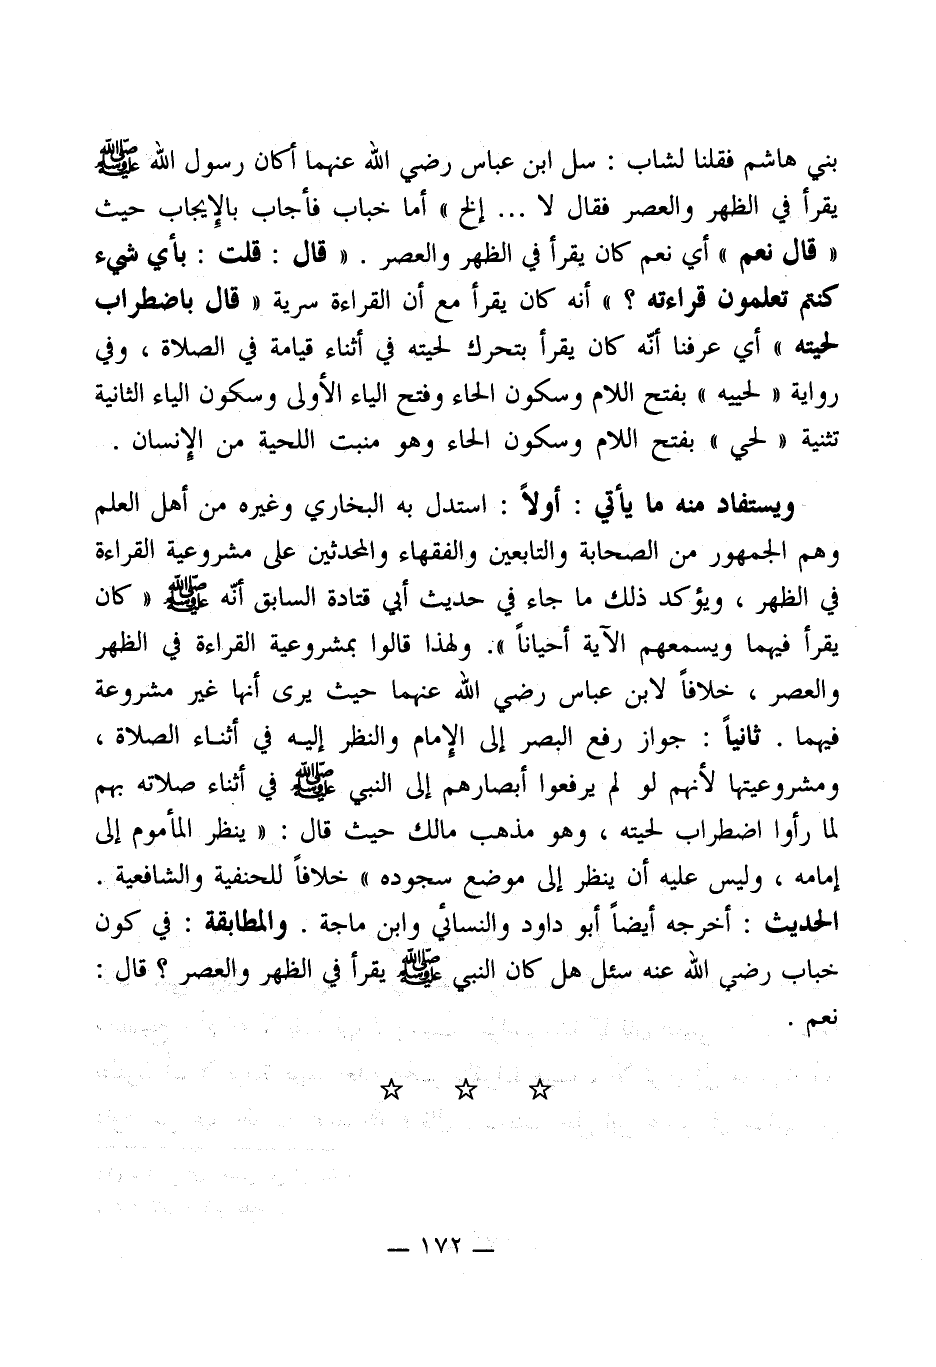 بني هاشم فقلنا لشاب : سل ابن عباس رضي الله عنهما أكان رسول الله ﷺ
يقرأ في الظهر والعصر فقال لا ... إلخ » أما خباب فأجاب بالإيجاب حيث
« قال نعم » أي نعم كان يقرأ في الظهر والعصر . « قال : قلت : بأي شيء
كنتم تعلمون قراءته ؟ » أنه كان يقرأ مع أن القراءة سرية « قال باضطراب
لحيته » أي عرفنا أنّه كان يقرأ بتحرك لحيته في أثناء قيامة في الصلاة ، وفي
رواية « لحييه » بفتح اللام وسكون الحاء وفتح الياء الأولى وسكون الياء الثانية
تثنية « لحي » بفتح اللام وسكون الحاء وهو منبت اللحية من الإنسان .
ويستفاد منه ما يأتي : أولاً : استدل به البخاري وغيره من أهل العلم
وهم الجمهور من الصحابة والتابعين والفقهاء والمحدثين على مشروعية القراءة
في الظهر ، ويؤكد ذلك ما جاء في حديث أبي قتادة السابق أنّه ﷺ « كان
يقرأ فيهما ويسمعهم الآية أحياناً ». ولهذا قالوا بمشروعية القراءة في الظهر
والعصر ، خلافاً لابن عباس رضي الله عنهما حيث يرى أنها غير مشروعة
فيهما . ثانياً : جواز رفع البصر إلى الإمام والنظر إليه في أثناء الصلاة ،
ومشروعيتها لأنهم لو لم يرفعوا أبصارهم إلى النبي ﷺ في أثناء صلاته بهم
لما رأوا اضطراب لحيته ، وهو مذهب مالك حيث قال : « ينظر المأموم إلى
إمامه ، وليس عليه أن ينظر إلى موضع سجوده » خلافاً للحنفية والشافعية .
الحديث : أخرجه أيضاً أبو داود والنسائي وابن ماجة . والمطابقة : في كون
خباب رضي الله عنه سئل هل كان النبي ﷺ يقرأ في الظهر والعصر ؟ قال :
نعم .
☆ ☆ ☆
— ١٧٢ —